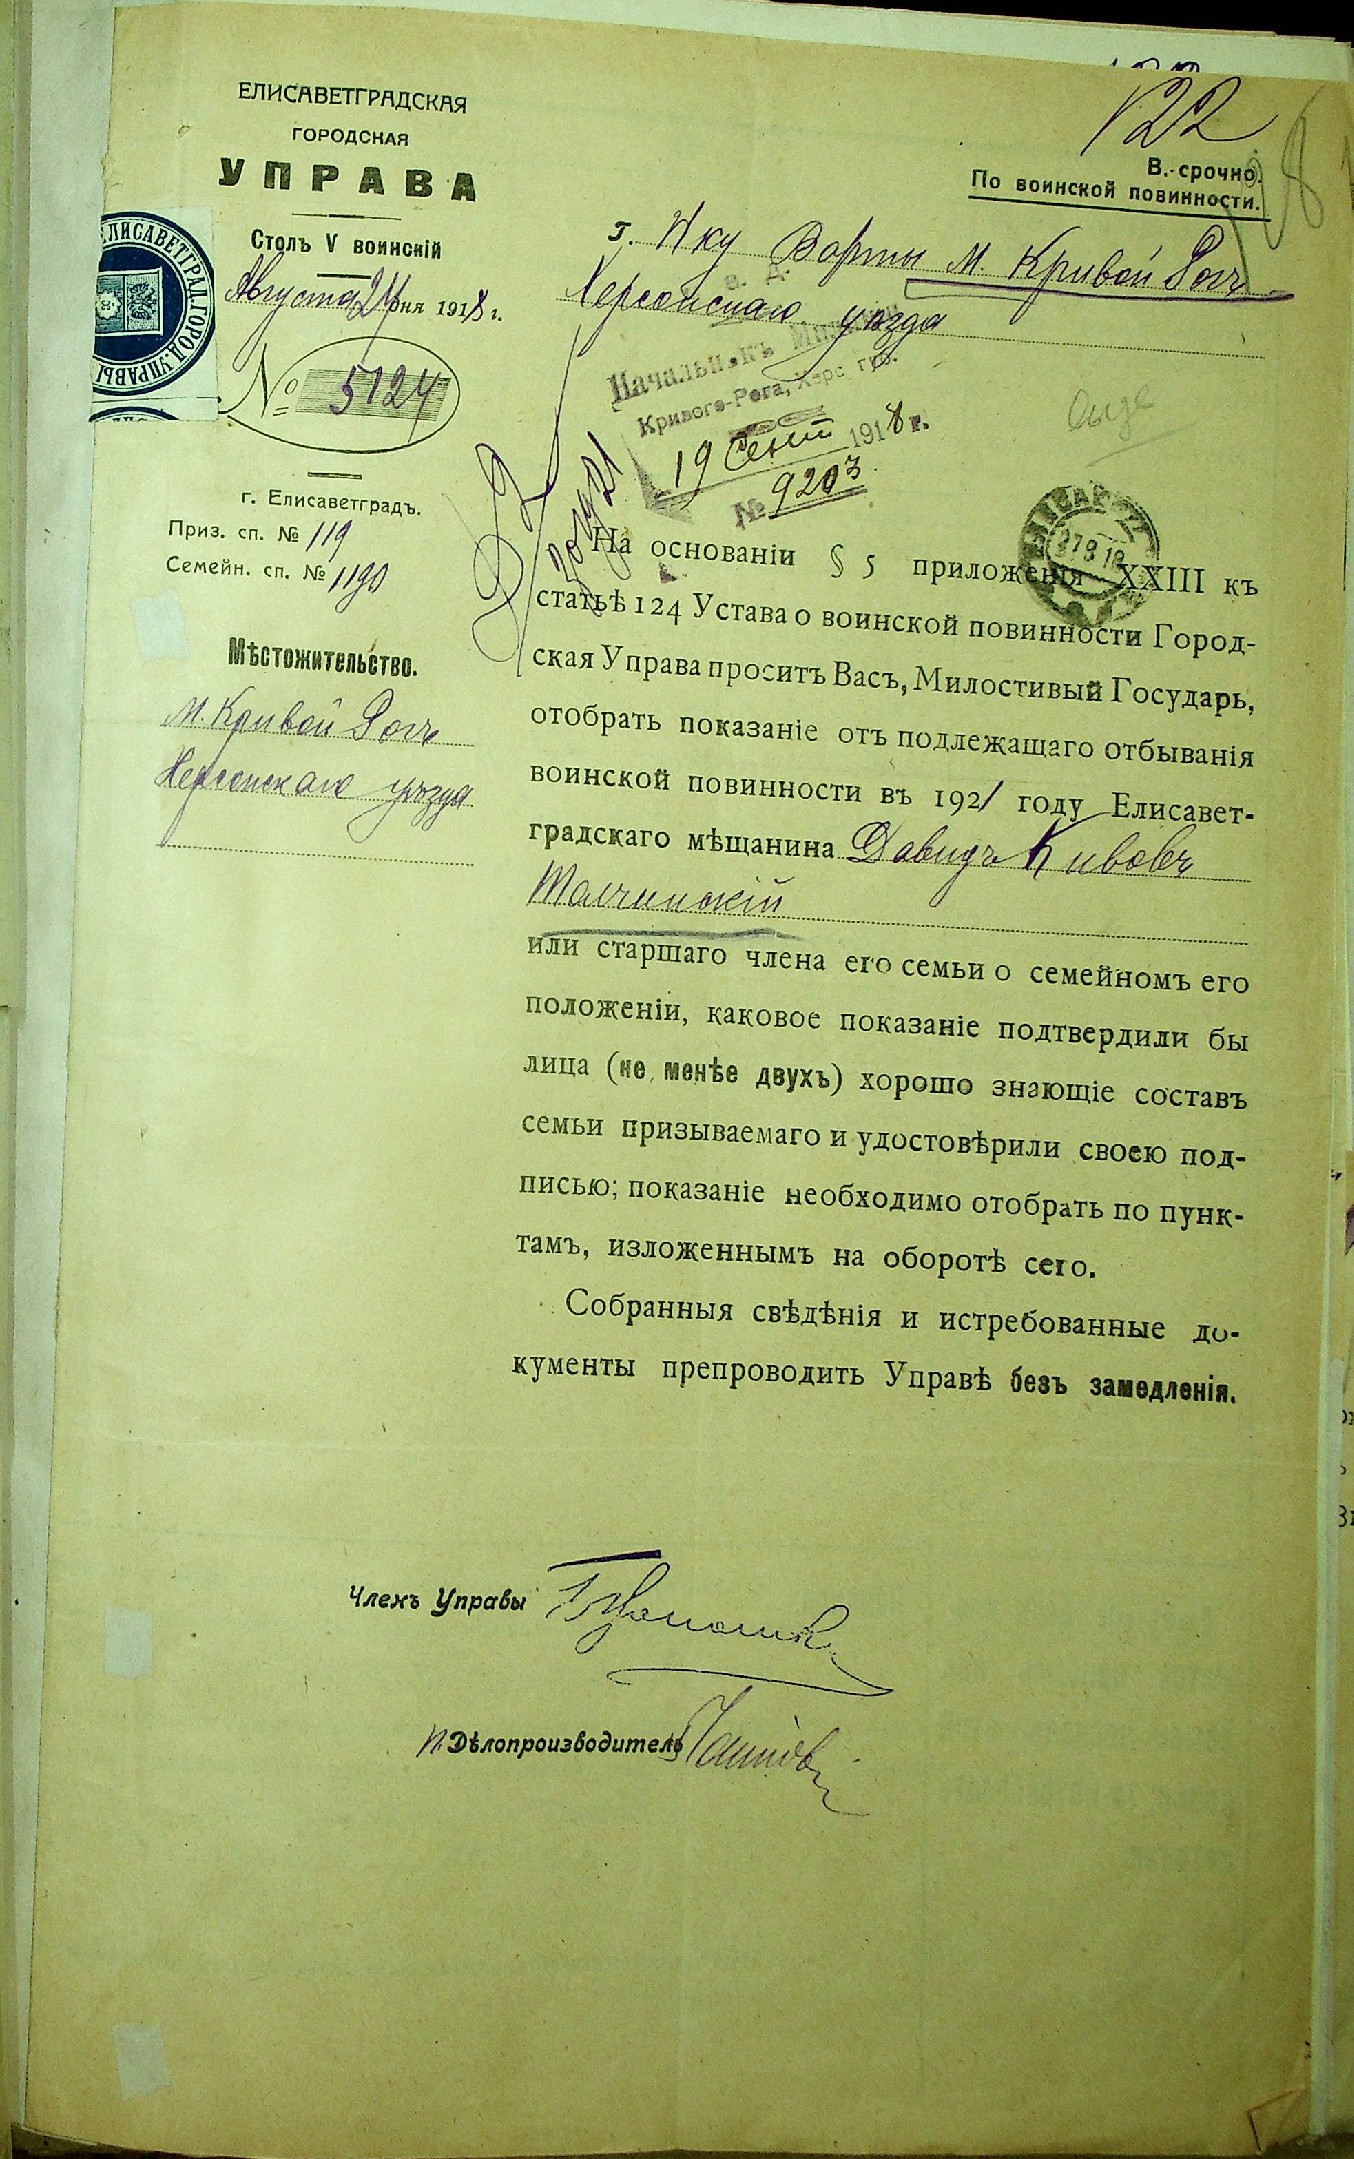 122
ЕЛИСАВЕТГРАДСКАЯ
ГОРОДСКАЯ
УПРАВА
Столъ V воинскій
Августа 24 дня 1918 г.
№ 5124
г. Елисаветградъ.
Приз. сп. № 119
Семейн. сп. № 1190
Мѣстожительство.
М. Кривой Рогъ
Херсонскаго уѣзда
В.-срочно.
По воинской повинности.
г. Нку Варты М. Кривой Рогъ
Херсонскаго уѣзда
Начальникъ
Кривого-Рога, Херс. губ.
19 Сент 1918 г.
№ 9203
На основаніи § 5 приложенія XXIII къ
статьѣ 124 Устава о воинской повинности Город-
ская Управа проситъ Васъ, Милостивый Государь,
отобрать показаніе отъ подлежащаго отбыванія
воинской повинности въ 1921 году Елисавет-
градскаго мѣщанина Давидъ Кивовъ
Толчинскій
или старшаго члена его семьи о семейномъ его
положеніи, каковое показаніе подтвердили бы
лица (не менѣе двухъ) хорошо знающіе составъ
семьи призываемаго и удостовѣрили своею под-
писью; показаніе необходимо отобрать по пунк-
тамъ, изложеннымъ на оборотѣ сего.
Собранныя свѣдѣнія и истребованные до-
кументы препроводить Управѣ безъ замедленія.
Членъ Управы
п. Дѣлопроизводитель